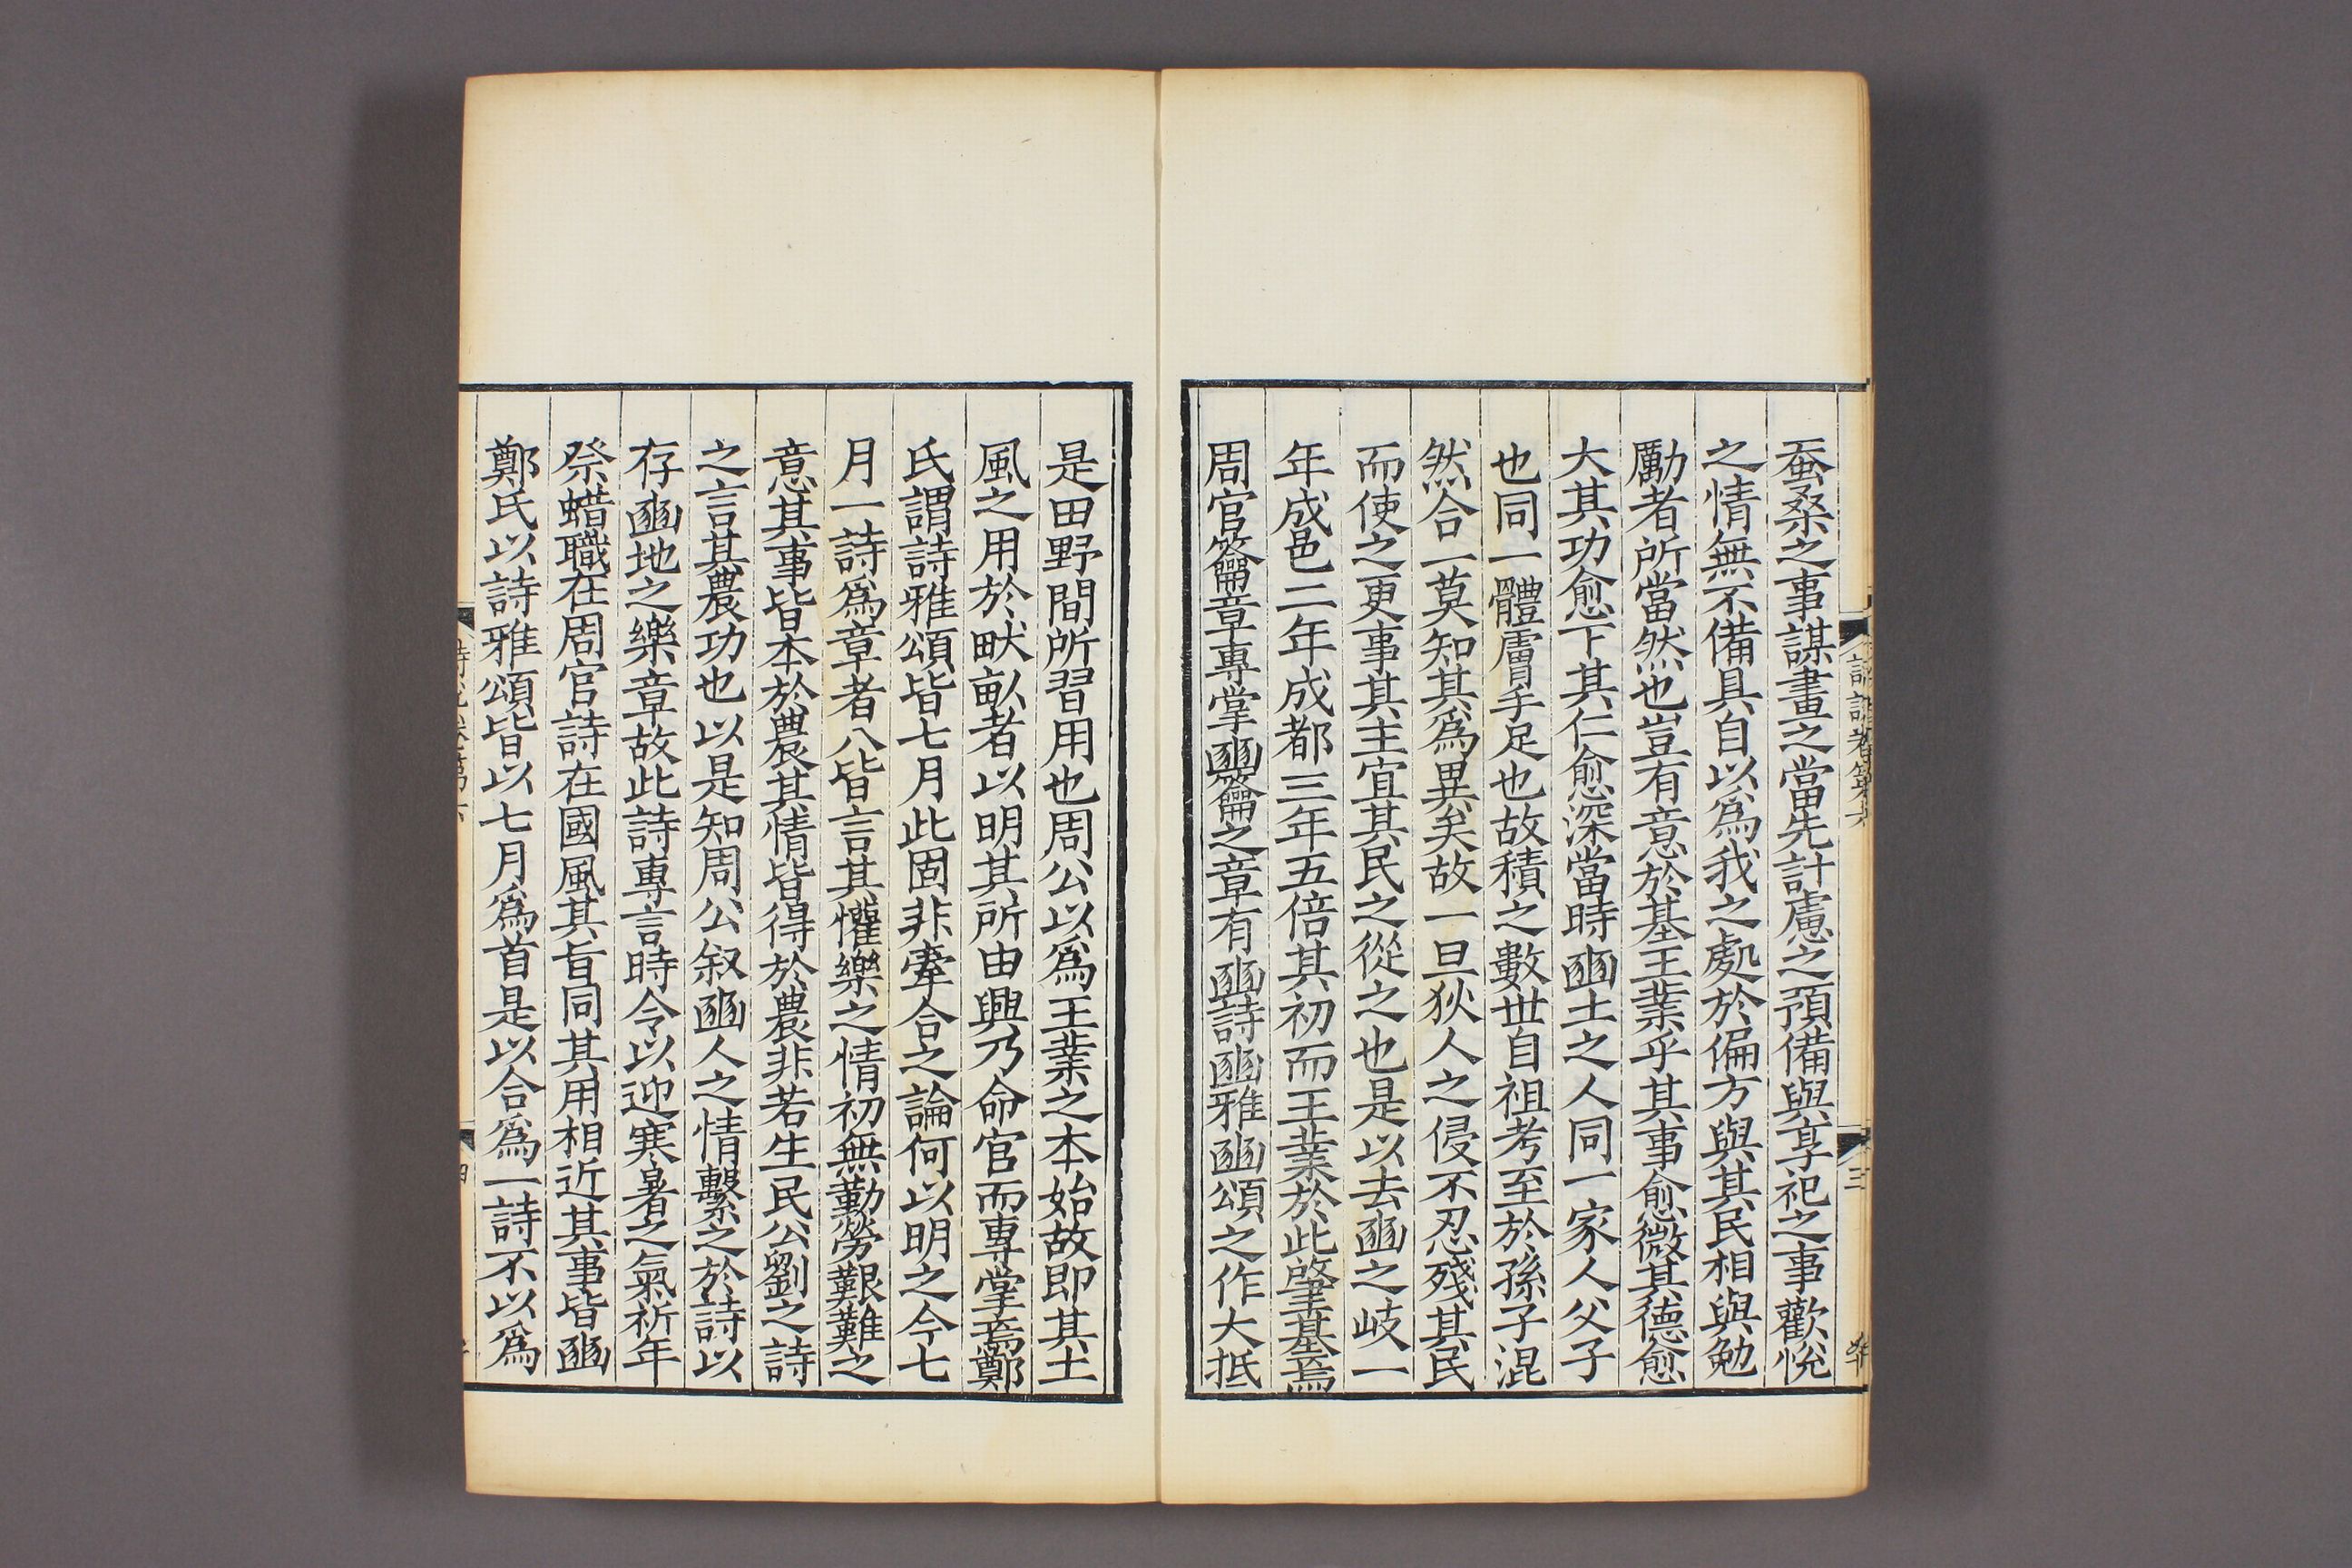 蚕桑之事謀畫之當先計慮之預備與享祀之事歡悅
之情無不備具自以爲我之處於偏方與其民相與勉
勵者所當然也豈有意於基王業乎其事愈微其德愈
大其功愈下其仁愈深當時豳土之人同一家人父子
也同一體膚手足也故積之數世自祖考至於孫子混
然合一莫知其爲異矣故一旦狄人之侵不忍殘其民
而使之更事其主宜其民之從之也是以去豳之岐一
年成邑二年成都三年五倍其初而王業於此肇基焉
周官籥章專掌豳籥之章有豳詩豳雅豳頌之作大抵
是田野間所習用也周公以爲王業之本始故即其土
風之用於畎畝者以明其所由興乃命官而專掌焉鄭
氏謂詩雅頌皆七月此固非牽合之論何以明之今七
月一詩爲章者八皆言其懽樂之情初無勤勞艱難之
意其事皆本於農其情皆得於農非若生民公劉之詩
之言其農功也以是知周公叙豳人之情繫之於詩以
存豳地之樂章故此詩專言時令以迎寒暑之氣祈年
祭蜡職在周官詩在國風其旨同其用相近其事皆豳
鄭氏以詩雅頌皆以七月爲首是以合爲一詩不以爲
三